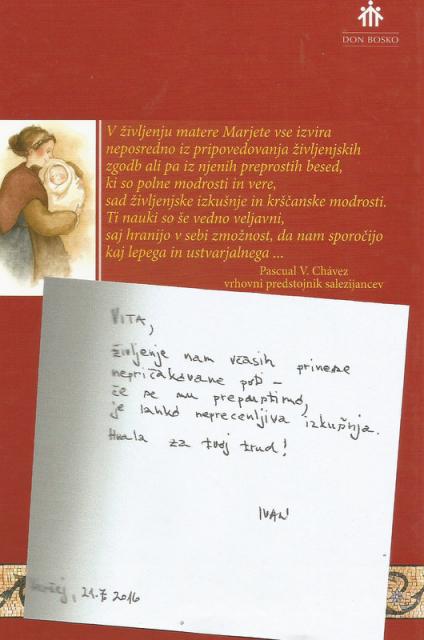 DON BOSKO
V življenju matere Marjete vse izvira
neposredno iz pripovedovanja življenjskih
zgodb ali pa iz njenih preprostih besed,
ki so polne modrosti in vere,
sad življenjske izkušnje in krščanske modrosti.
Ti nauki so še vedno veljavni,
saj hranijo v sebi zmožnost, da nam sporočijo
kaj lepega in ustvarjalnega ...
Pascual V. Chávez
vrhovni predstojnik salezijancev
VITA,
življenje nam včasih prinese
nepričakovane poti –
če se mu prepustimo,
je lahko neprecenljiva izkušnja.
Hvala za tvoj trud!
IVAN
21.7.2016